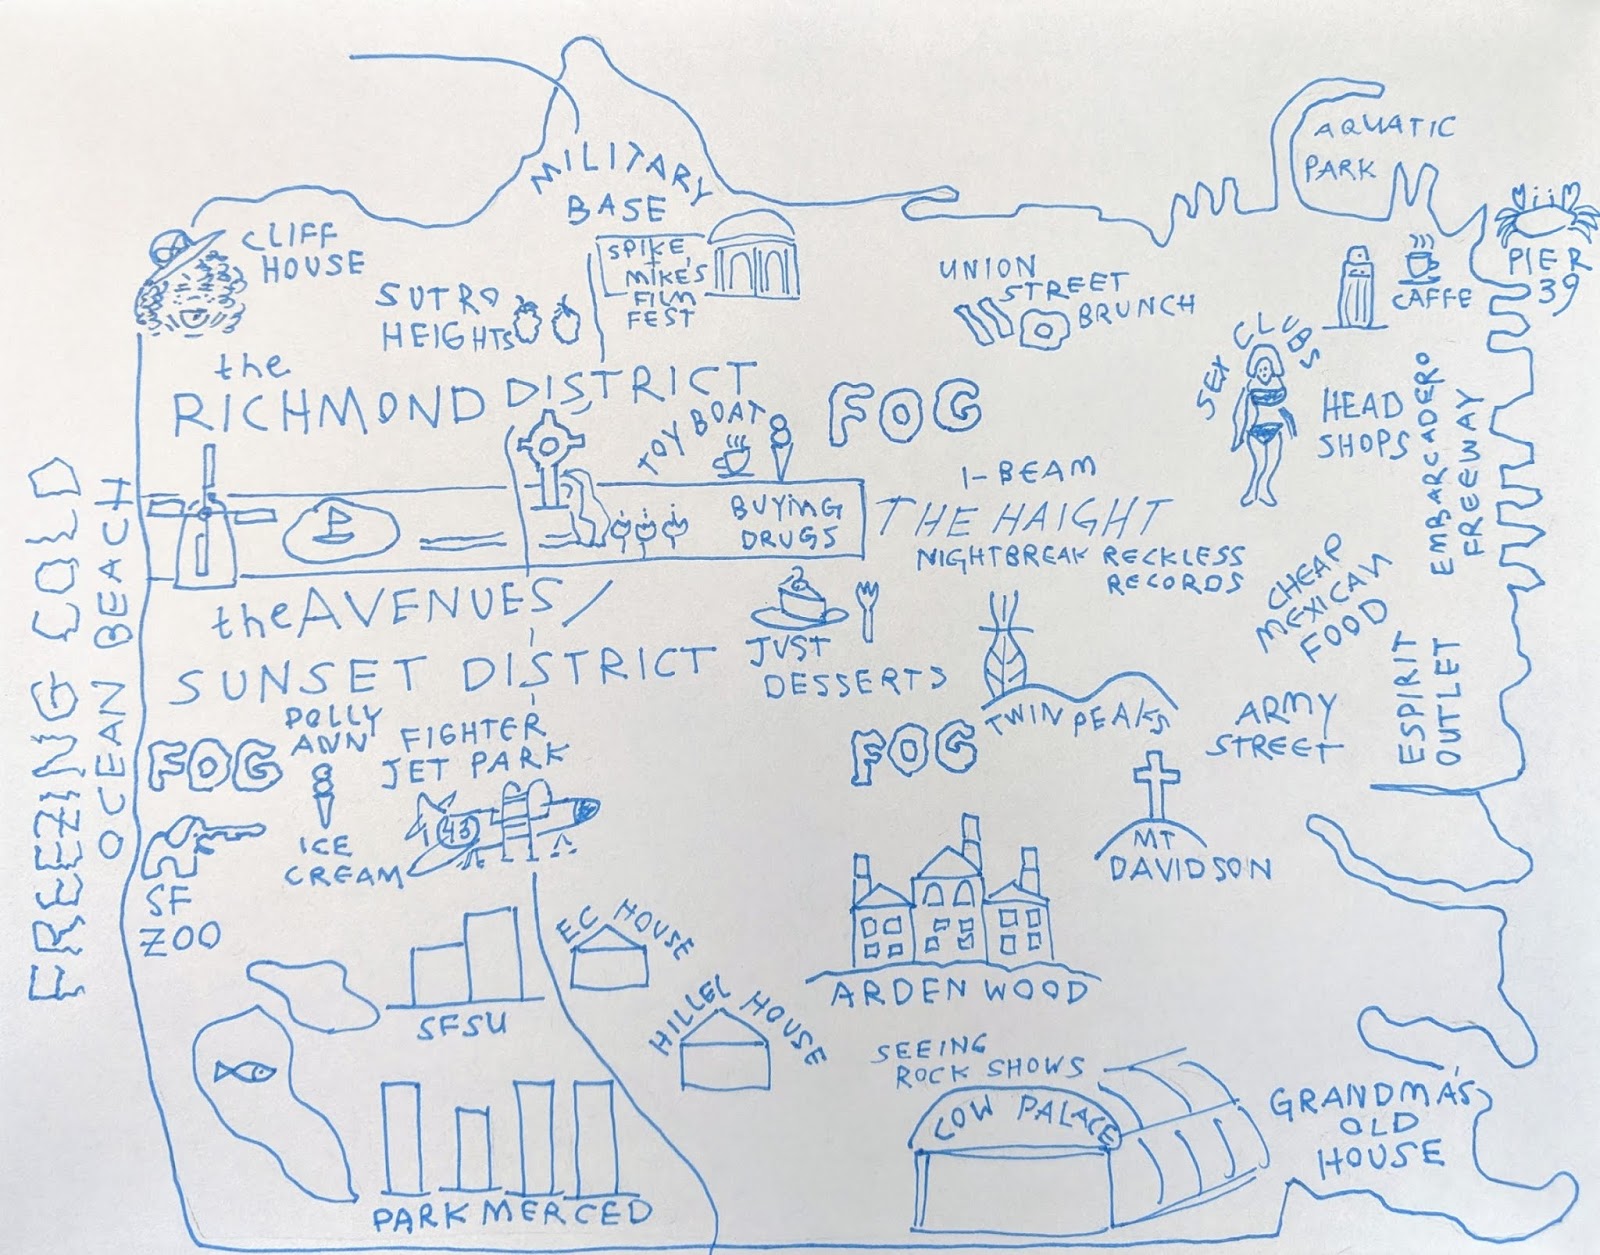 AQUATIC
PARK
MILITARY
BASE
CLIFF
HOUSE
SUTRO
HEIGHTS
SPIKE
+
MIKE'S
FILM
FEST
UNION
STREET
BRUNCH
CAFFE
PIER
39
the
RICHMOND DISTRICT
TOY BOAT
FOG
SEX CLUBS
HEAD
SHOPS
EMBARCADERO
FREEWAY
I-BEAM
THE HAIGHT
NIGHTBREAK RECKLESS
RECORDS
BUYING
DRUGS
FREEZING COLD
OCEAN BEACH
the AVENUES/
SUNSET DISTRICT
JUST
DESSERTS
CHEAP
MEXICAN
FOOD
ESPRIT
OUTLET
TWIN PEAKS
ARMY
STREET
FOG
POLLY
ANN
ICE
CREAM
FIGHTER
JET PARK
43
FOG
SF
ZOO
MT
DAVIDSON
EC HOUSE
HILLEL HOUSE
SFSU
ARDENWOOD
SEEING
ROCK SHOWS
COW PALACE
GRANDMA'S
OLD
HOUSE
PARKMERCED